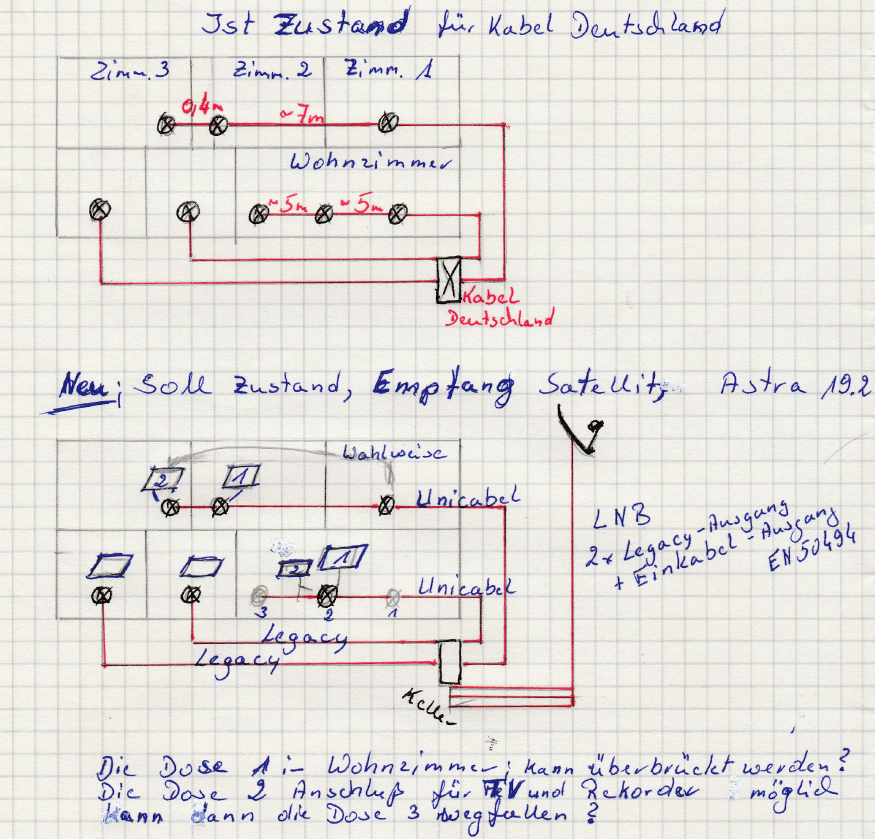 Ist Zustand für Kabel Deutschland
Zimm. 3 Zimm. 2 Zimm. 1
0,4m ~7m
Wohnzimmer
~5m ~5m
Kabel
Deutschland
Neu; Soll Zustand, Empfang Satellit, Astra 19.2
Wahlweise
2 1
Unicabel
LNB
2x Legacy-Ausgang
+ Einkabel-Ausgang
EN 50494
2 1
Unicabel
3 2 1
Legacy
Legacy
Keller
Die Dose 1 im Wohnzimmer; kann überbrückt werden?
Die Dose 2 Anschluß für TV und Rekorder möglich
kann dann die Dose 3 wegfallen?